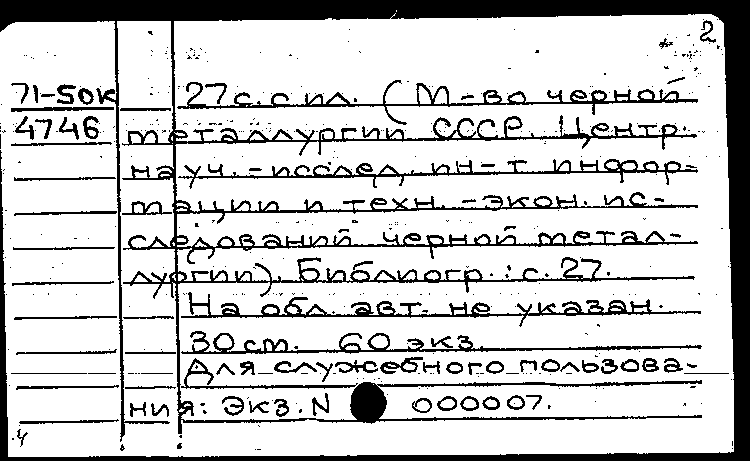 2
71-50к 27с. с ил. (М-во черной
4746 металлургии СССР. Центр.
науч.-исслед. ин-т инфор-
мации и техн.-экон. ис-
следований черной метал-
лургии). Библиогр.: с. 27.
На обл. авт. не указан.
30 см. 60 экз.
Для служебного пользова-
ния: Экз. N 000007.
4